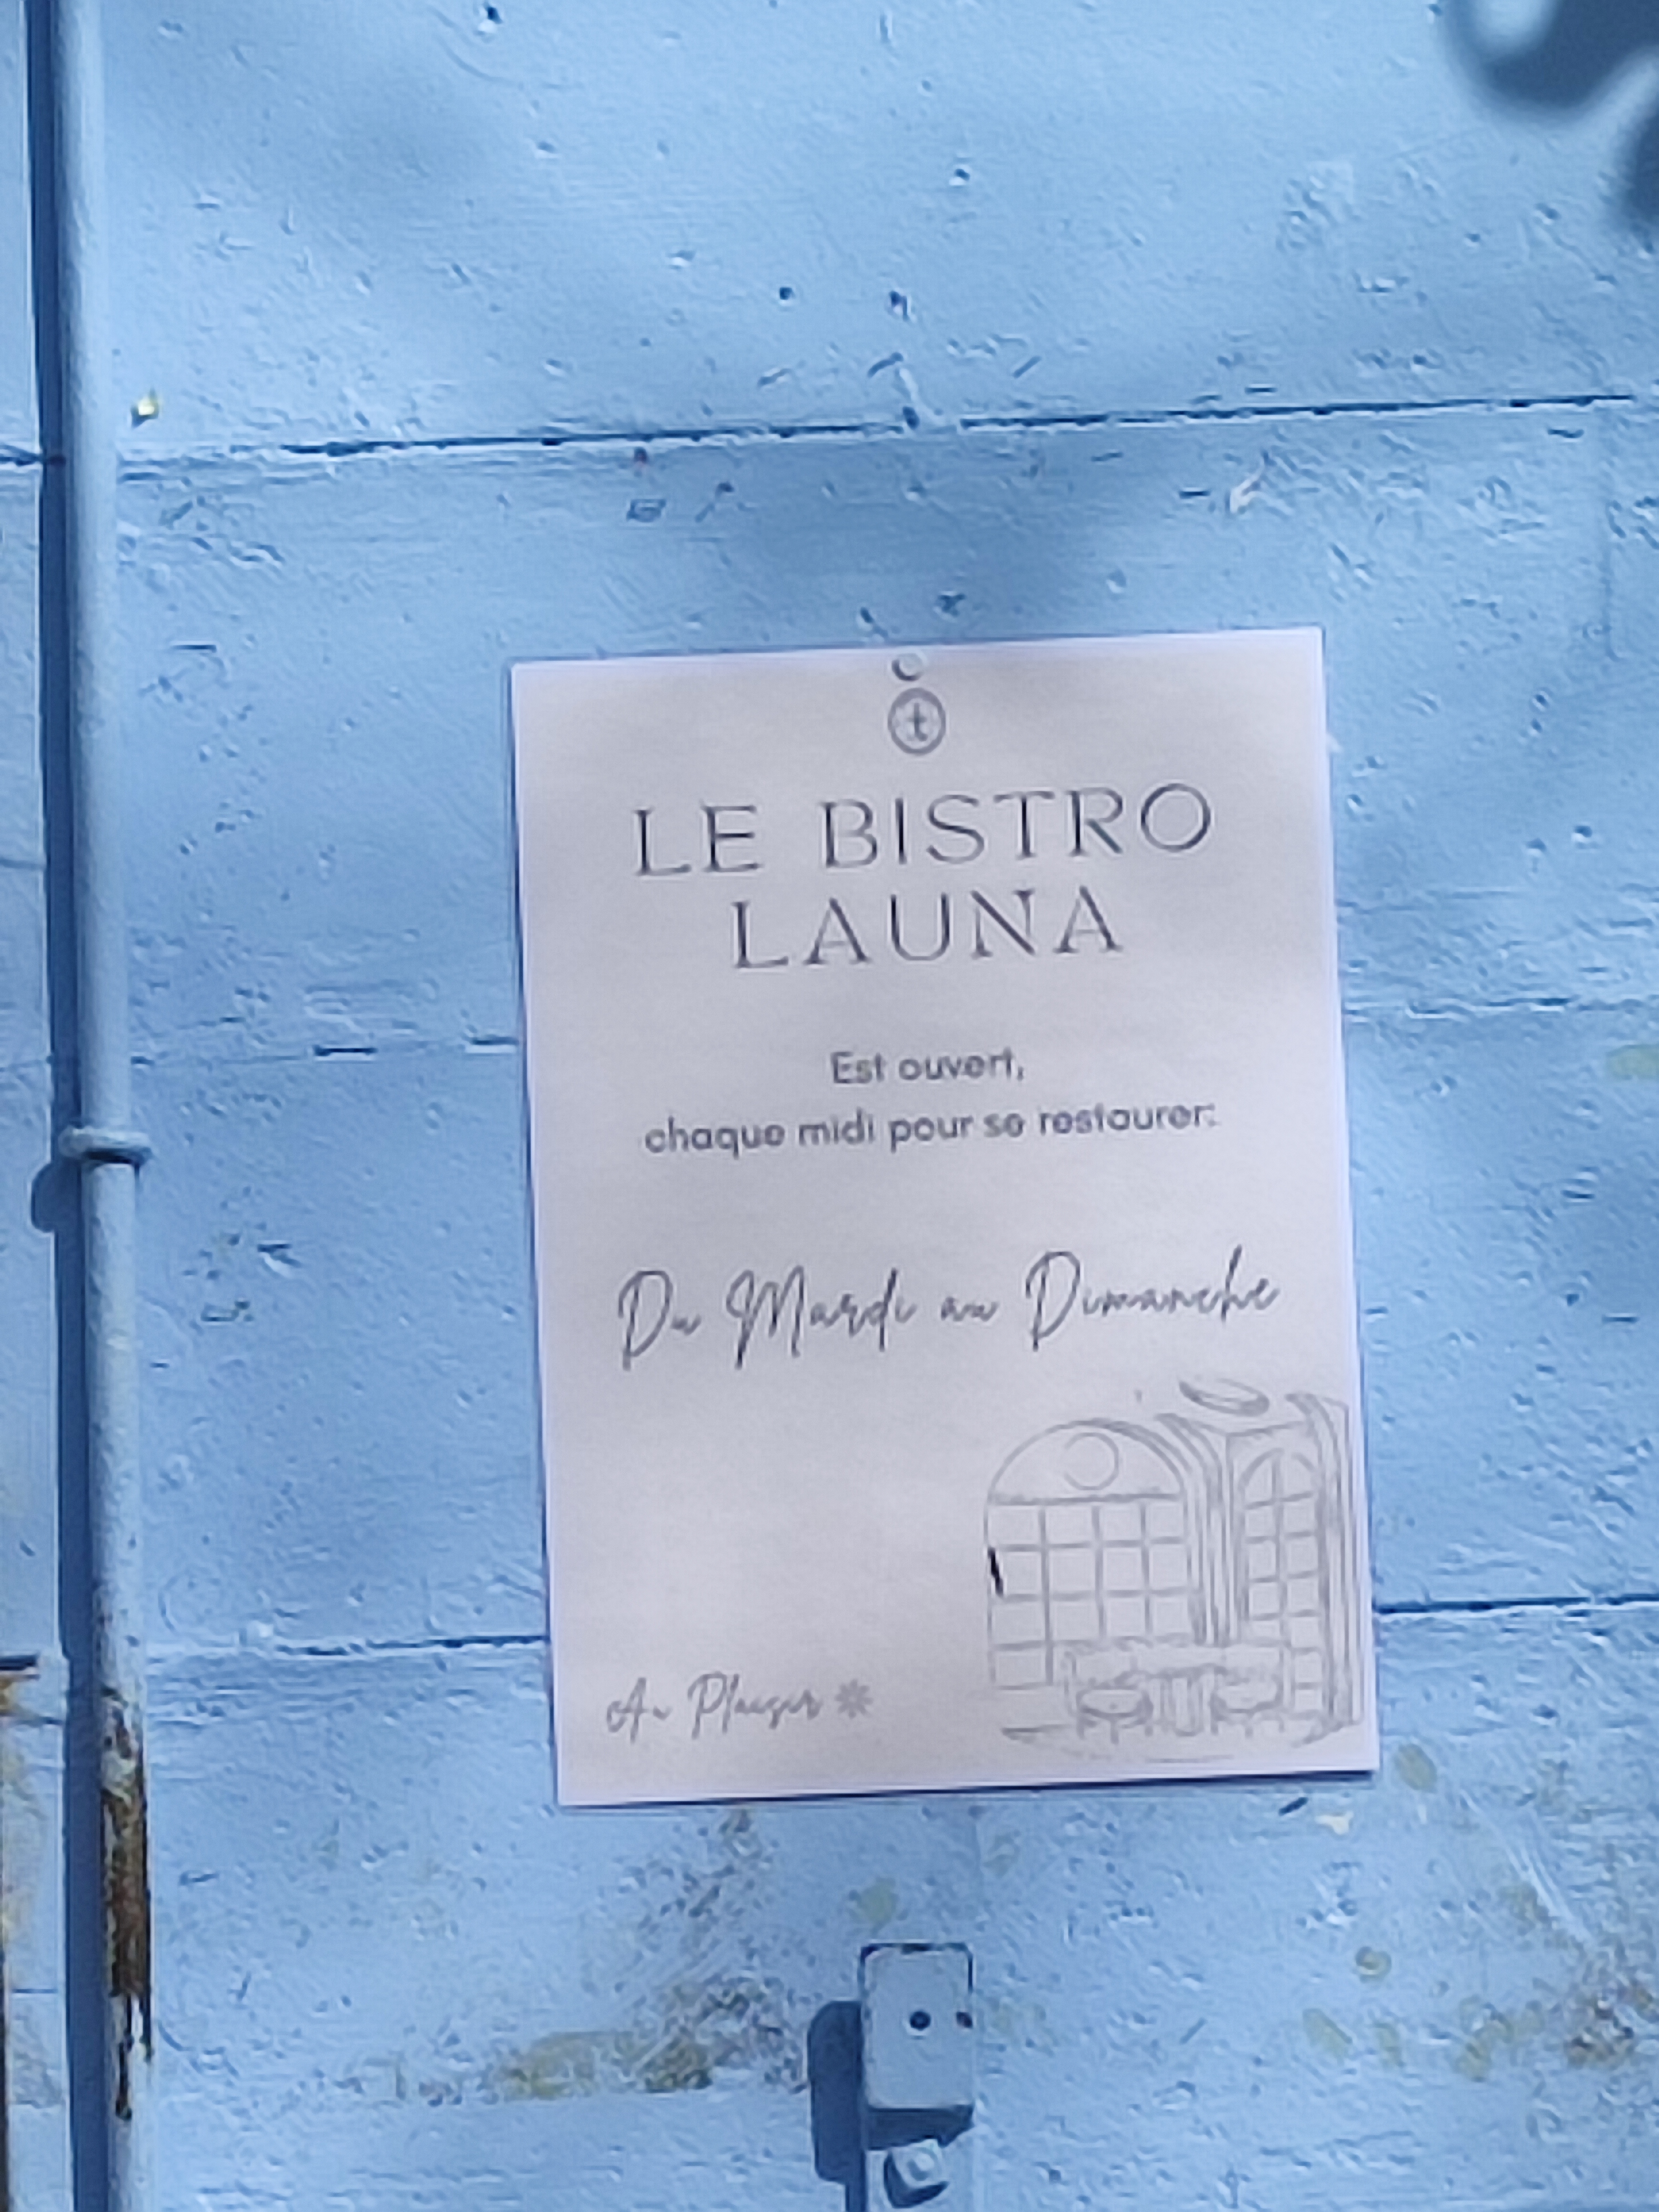 t
LE BISTRO
LAUNA
Est ouvert,
chaque midi pour se restaurer:
Du Mardi au Dimanche
Au Plaisir